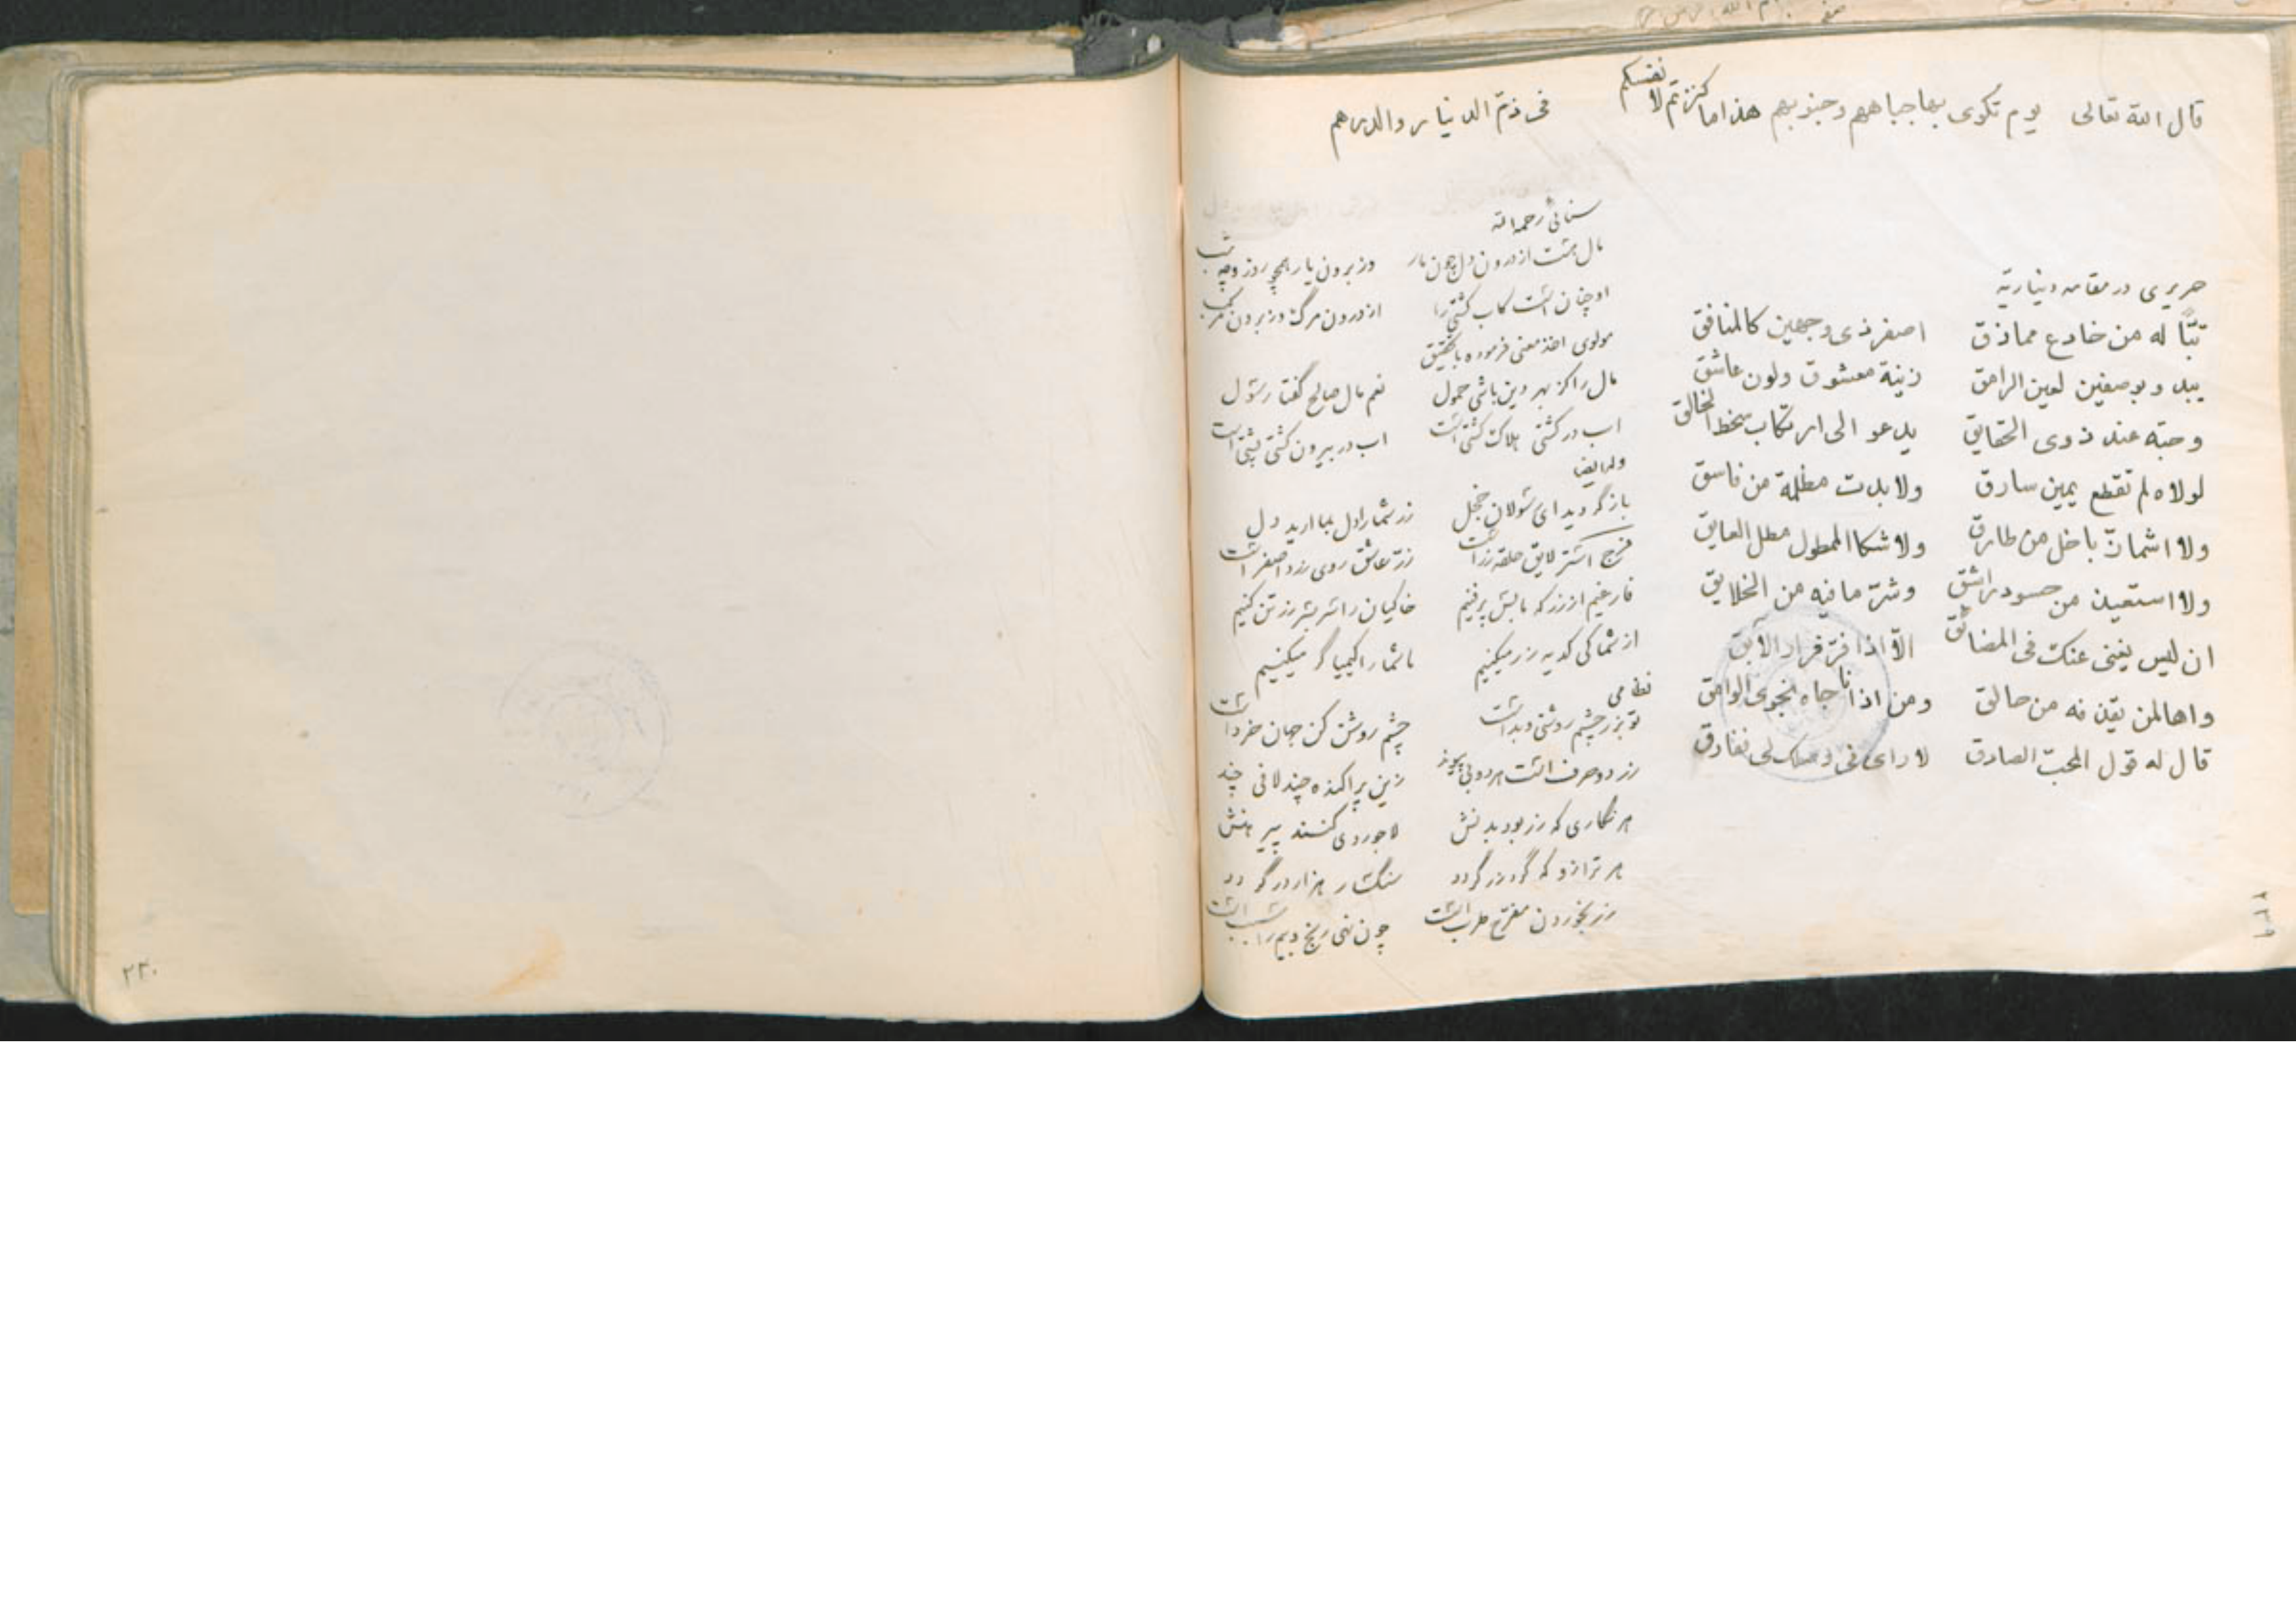 قال الله تعالى يوم تكوى بها جباههم وجنوبهم هذا ما كنزتم لانفسكم
فى ذمّ الدنيار والدرهم
حريرى در مقامه ديناريّة
تبًّا له من خادع مماذق اصفر ذى وجهين كالمنافق
يبدو بوصفين لعين الرامق زينة معشوق ولون عاشق
وحبّه عند ذوى الحقايق يدعو الى ارتكاب سخط الخالق
لولاه لم تقطع يمين سارق ولا بدت مظلمة من فاسق
ولا اشمازّ باخل من طارق ولا شكا الممطول مطل العايق
ولا استعيذ من حسود راشق وشرّ ما فيه من الخلايق
ان ليس يغنى عنك فى المضائق الّا اذا فرّ فرار الآبق
واها لمن يقذفه من حالق ومن اذا ناجاه نجوى الوامق
قال له قول المحبّ الصادق لا راى فى وصلك لى ففارق
سنائى رحمه الله
مال هست از درون دل چون مار وز برون يار همچو روز و شب
او چنان است كاب كشتى را از درون مرگ وز برون مركب
مولوى اخذ معنى فرموده بالتحقيق
مال را كز بهر دين باشى حمول نعم مال صالح گفتا رسول
اب در كشتى هلاك كشتى است اب در بيرون كشتى پشتى است
وله ايضا
باز گرديد اى رسولان خجل زر شما را دل بما اريد دل
فرج استر لايق حلقه زر است زر عاشق روى زرد اصفر است
فارغيم از زر كه ما بس پر فنيم خاكيان را سر بسر زرتن كنيم
از شما كى كديه زر ميكنيم ما شما را كيمياگر ميكنيم
نظامى
تو بزر چشم روشنى و بد است چشم روشن كن جهان خرد است
زر دو حرف است هر دو بى پيوند زين پراكنده چند لافى چند
هر نگارى كه زر بود بدنش لاجوردى كنند پيرهنش
هر ترازو كه گرد زر گردد سنگسار هزار در گردد
زر بخوردن مفرّح طرب است چون نهى رنج و بيم را سبب است
٢٣٩
٢٤٠